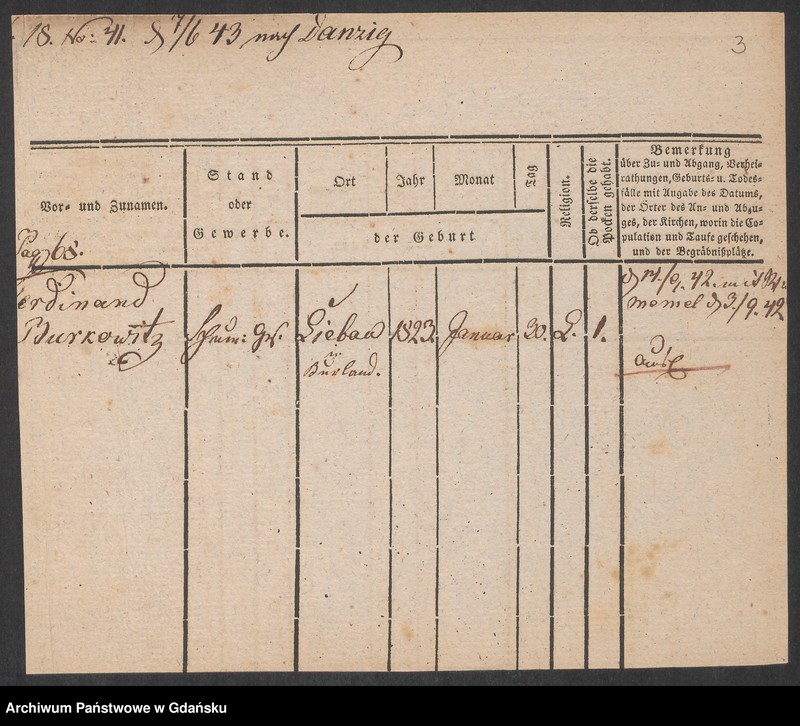 18. No: 41. d 7/6 43 nach Danzig
3
Vor- und Zunamen.
Stand
oder
Gewerbe.
Ort
Jahr
Monat
Tag
der Geburt
Religion.
Ob derselbe die
Pocken gehabt.
Bemerkung
über Zu- und Abgang, Verhei-
rathungen, Geburts- u. Todes-
fälle mit Angabe des Datums,
der Örter des An- und Abzu-
ges, der Kirchen, worin die Co-
pulation und Taufe geschehen,
und der Begräbnißplätze.
Pag 68.
Ferdinand
Burkowitz
Ges.
Liebau
Kurland.
1823.
Januar
30.
L.
1.
d 14/9. 42. mit
Memel d 3/9. 42
Archiwum Państwowe w Gdańsku